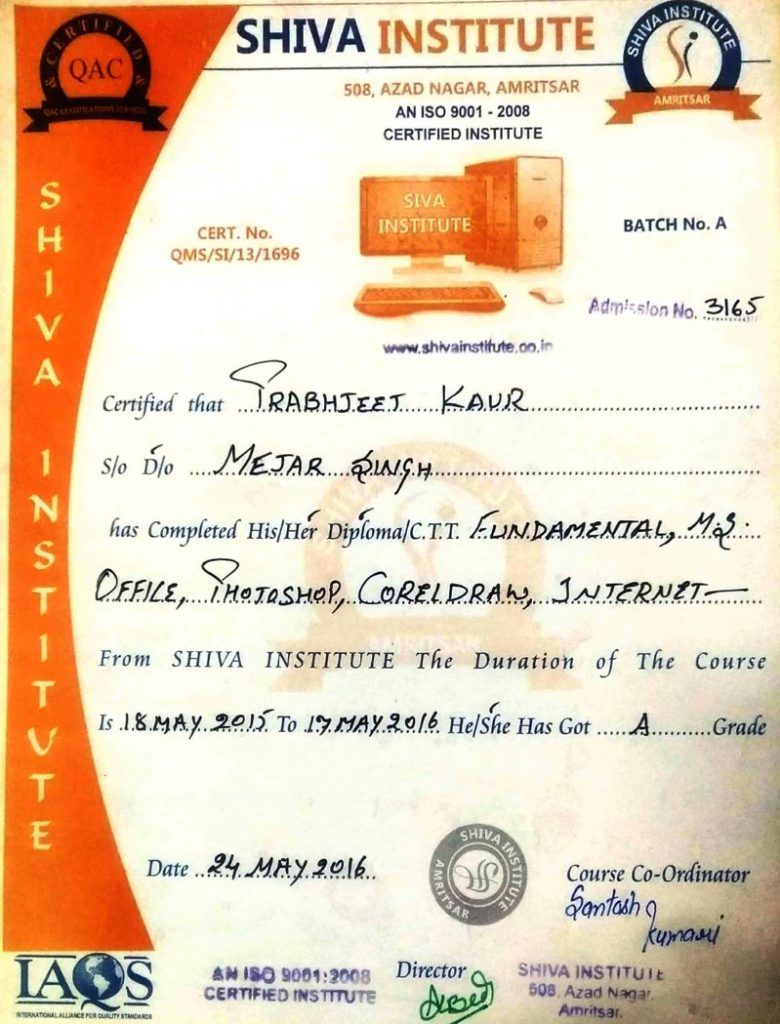 SHIVA INSTITUTE
CERTIFIED
QAC
QAC CERTIFICATIONS SERVICES
SHIVA INSTITUTE
AMRITSAR
508, AZAD NAGAR, AMRITSAR
AN ISO 9001 - 2008
CERTIFIED INSTITUTE
SIVA
INSTITUTE
CERT. No.
QMS/SI/13/1696
BATCH No. A
Admission No. 3165
www.shivainstitute.co.in
SHIVA INSTITUTE
Certified that PRABHJEET KAUR
S/o D/o MEJAR SINGH
has Completed His/Her Diploma/C.T.T. FUNDAMENTAL, M.S.
OFFICE, PHOTOSHOP, CORELDRAW, INTERNET
From SHIVA INSTITUTE The Duration of The Course
Is 18 MAY 2015 To 17 MAY 2016 He/She Has Got A Grade
SHIVA INSTITUTE
AMRITSAR
Date 24 MAY 2016
SHIVA INSTITUTE
AMRITSAR
Course Co-Ordinator
Santosh Kumari
IAQS
INTERNATIONAL ALLIANCE FOR QUALITY STANDARDS
AN ISO 9001:2008
CERTIFIED INSTITUTE
Director
SHIVA INSTITUTE
508, Azad Nagar,
Amritsar.